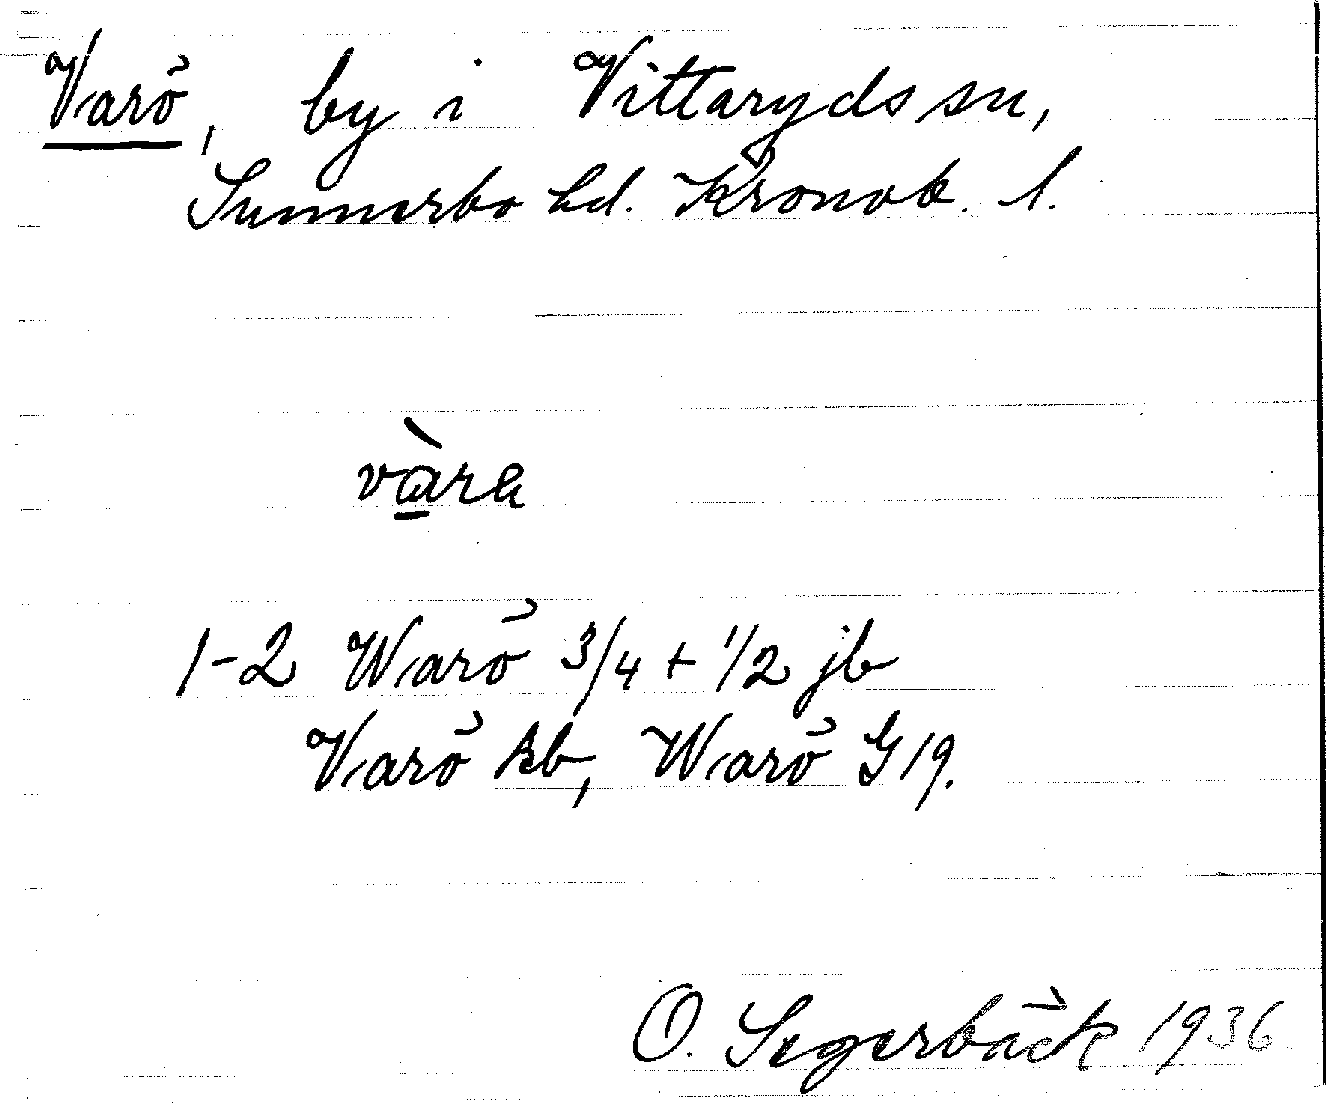 Varö, by i Vittaryds sn,
Sunnerbo hd. Kronob. l.
vàra
1-2 Warö 3/4 + 1/2 jb
Varö kb, Warö G 19.
O. Segerbäck 1936